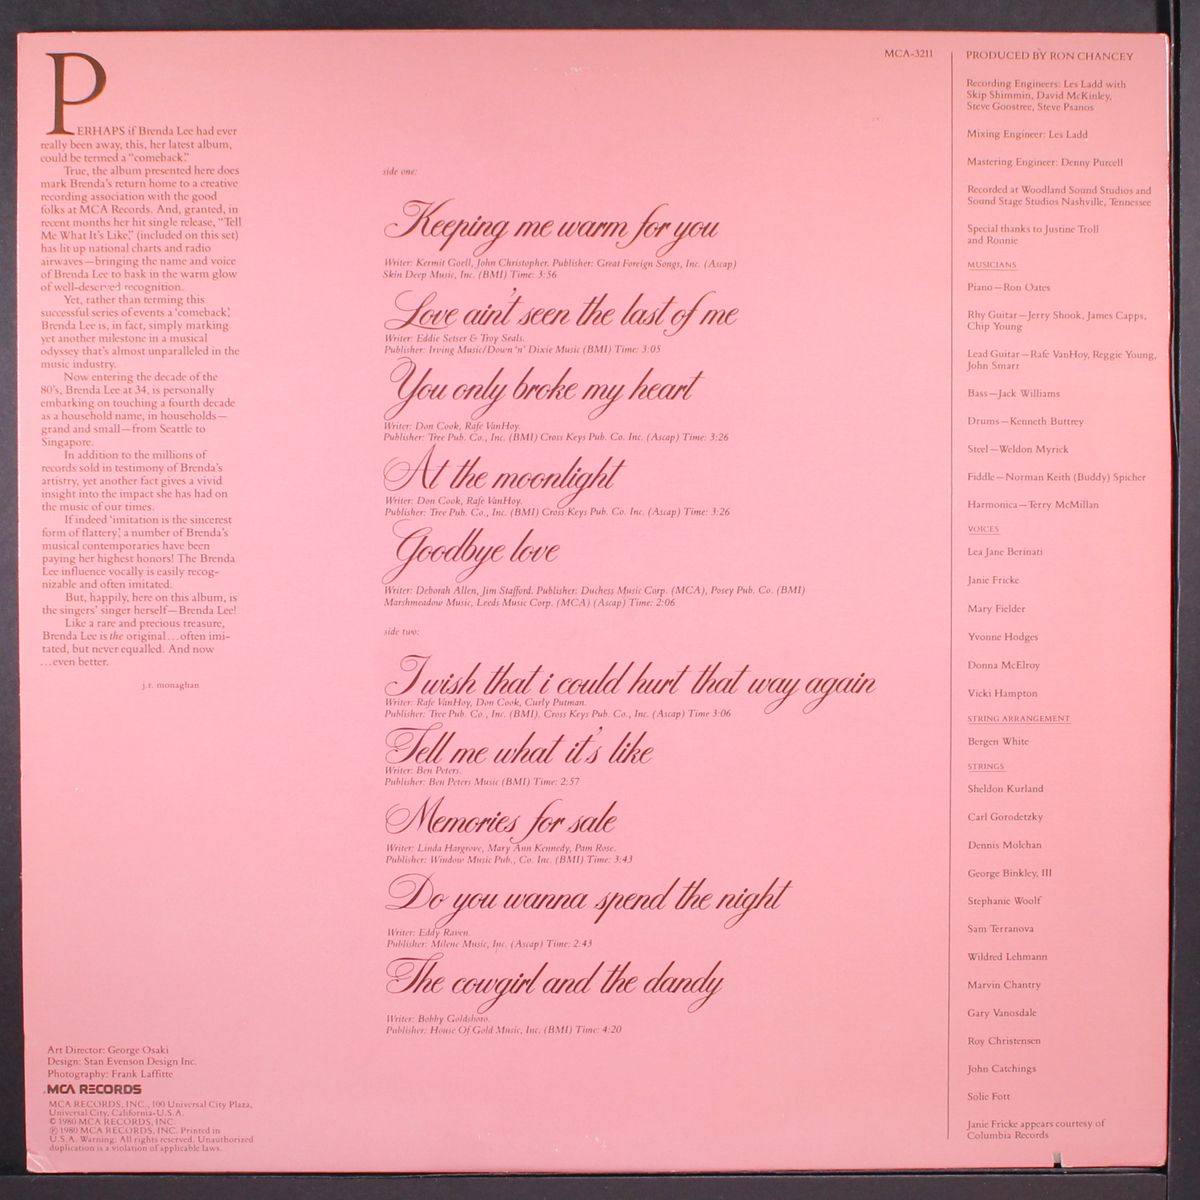 PERHAPS if Brenda Lee had ever
really been away, this, her latest album,
could be termed a "comeback."
True, the album presented here does
mark Brenda's return home to a creative
recording association with the good
folks at MCA Records. And, granted, in
recent months her hit single release, "Tell
Me What It's Like," (included on this set)
has lit up national charts and radio
airwaves—bringing the name and voice
of Brenda Lee to bask in the warm glow
of well-deserved recognition.
Yet, rather than terming this
successful series of events a 'comeback',
Brenda Lee is, in fact, simply marking
yet another milestone in a musical
odyssey that's almost unparalleled in the
music industry.
Now entering the decade of the
80's, Brenda Lee at 34, is personally
embarking on touching a fourth decade
as a household name, in households—
grand and small—from Seattle to
Singapore.
In addition to the millions of
records sold in testimony of Brenda's
artistry, yet another fact gives a vivid
insight into the impact she has had on
the music of our times.
If indeed 'imitation is the sincerest
form of flattery', a number of Brenda's
musical contemporaries have been
paying her highest honors! The Brenda
Lee influence vocally is easily recog-
nizable and often imitated.
But, happily, here on this album, is
the singers' singer herself—Brenda Lee!
Like a rare and precious treasure,
Brenda Lee is the original...often imi-
tated, but never equalled. And now
...even better.
j.r. monaghan
Art Director: George Osaki
Design: Stan Evenson Design Inc.
Photography: Frank Laffitte
MCA RECORDS
MCA RECORDS, INC., 100 Universal City Plaza,
Universal City, California-U.S.A.
© 1980 MCA RECORDS, INC.
℗ 1980 MCA RECORDS, INC. Printed in
U.S.A. Warning: All rights reserved. Unauthorized
duplication is a violation of applicable laws.
MCA-3211
side one:
Keeping me warm for you
Writer: Kermit Goell, John Christopher. Publisher: Great Foreign Songs, Inc. (Ascap)
Skin Deep Music, Inc. (BMI) Time: 3:56
Love ain't seen the last of me
Writer: Eddie Setser & Troy Seals.
Publisher: Irving Music/Down 'n' Dixie Music (BMI) Time: 3:05
You only broke my heart
Writer: Don Cook, Rafe VanHoy.
Publisher: Tree Pub. Co., Inc. (BMI) Cross Keys Pub. Co. Inc. (Ascap) Time: 3:26
At the moonlight
Writer: Don Cook, Rafe VanHoy.
Publisher: Tree Pub. Co., Inc. (BMI) Cross Keys Pub. Co. Inc. (Ascap) Time: 3:26
Goodbye love
Writer: Deborah Allen, Jim Stafford. Publisher: Duchess Music Corp. (MCA), Posey Pub. Co. (BMI)
Marshmeadow Music, Leeds Music Corp. (MCA) (Ascap) Time: 2:06
side two:
I wish that i could hurt that way again
Writer: Rafe VanHoy, Don Cook, Curly Putman.
Publisher: Tree Pub. Co., Inc. (BMI). Cross Keys Pub. Co., Inc. (Ascap) Time 3:06
Tell me what it's like
Writer: Ben Peters.
Publisher: Ben Peters Music (BMI) Time: 2:57
Memories for sale
Writer: Linda Hargrove, Mary Ann Kennedy, Pam Rose.
Publisher: Window Music Pub., Co. Inc. (BMI) Time: 3:43
Do you wanna spend the night
Writer: Eddy Raven.
Publisher: Milene Music, Inc. (Ascap) Time: 2:43
The cowgirl and the dandy
Writer: Bobby Goldsboro.
Publisher: House Of Gold Music, Inc. (BMI) Time: 4:20
PRODUCED BY RON CHANCEY
Recording Engineers: Les Ladd with
Skip Shimmin, David McKinley,
Steve Goostree, Steve Psanos
Mixing Engineer: Les Ladd
Mastering Engineer: Denny Purcell
Recorded at Woodland Sound Studios and
Sound Stage Studios Nashville, Tennessee
Special thanks to Justine Troll
and Ronnie
MUSICIANS
Piano—Ron Oates
Rhy Guitar—Jerry Shook, James Capps,
Chip Young
Lead Guitar—Rafe VanHoy, Reggie Young,
John Smarr
Bass—Jack Williams
Drums—Kenneth Buttrey
Steel—Weldon Myrick
Fiddle—Norman Keith (Buddy) Spicher
Harmonica—Terry McMillan
VOICES
Lea Jane Berinati
Janie Fricke
Mary Fielder
Yvonne Hodges
Donna McElroy
Vicki Hampton
STRING ARRANGEMENT
Bergen White
STRINGS
Sheldon Kurland
Carl Gorodetzky
Dennis Molchan
George Binkley, III
Stephanie Woolf
Sam Terranova
Wildred Lehmann
Marvin Chantry
Gary Vanosdale
Roy Christensen
John Catchings
Solie Fott
Janie Fricke appears courtesy of
Columbia Records